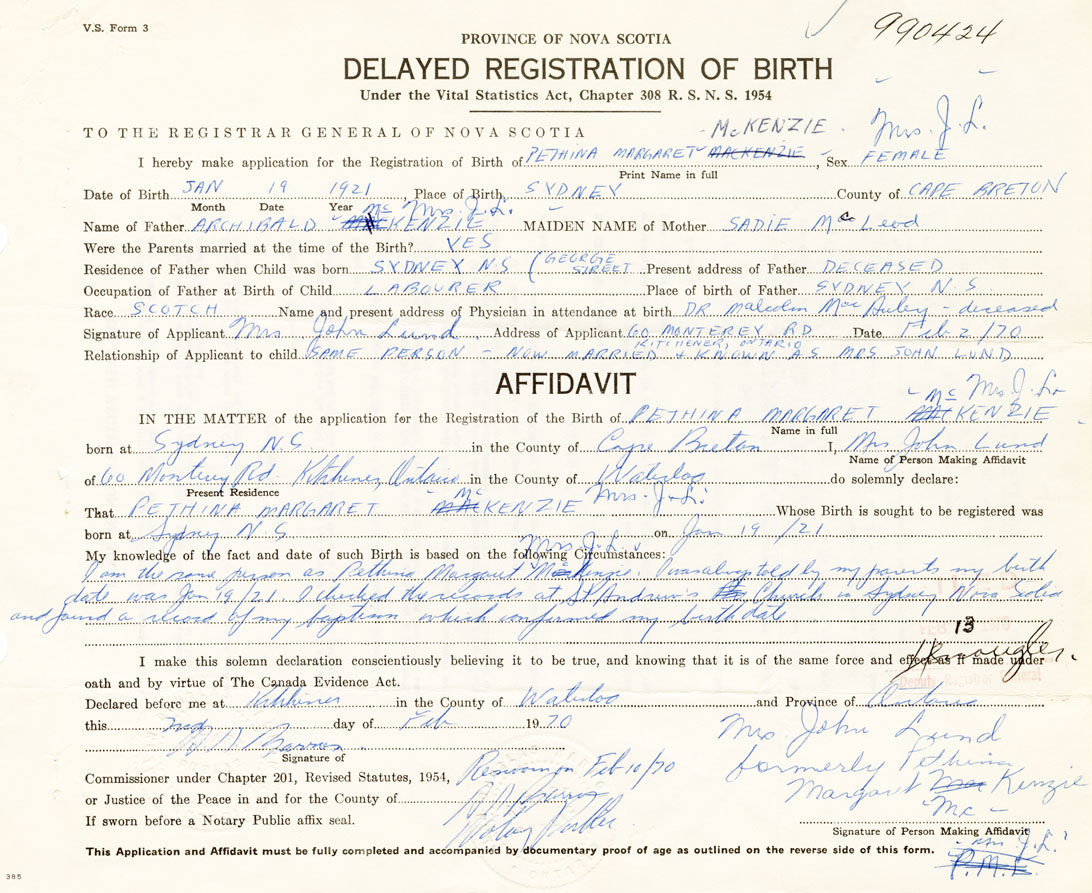 V.S. Form 3
990424
PROVINCE OF NOVA SCOTIA
DELAYED REGISTRATION OF BIRTH
Under the Vital Statistics Act, Chapter 308 R. S. N. S. 1954
McKENZIE. Mrs. J. L.
TO THE REGISTRAR GENERAL OF NOVA SCOTIA
I hereby make application for the Registration of Birth of PETHINA MARGARET MACKENZIE, Sex FEMALE
Print Name in full
Date of Birth JAN 19 1921 Place of Birth SYDNEY County of CAPE BRETON
Month Date Year Mc Mrs. J. L.
Name of Father ARCHIBALD MACKENZIE MAIDEN NAME of Mother SADIE McLeod
Were the Parents married at the time of the Birth? YES
Residence of Father when Child was born SYDNEY N.S (GEORGE STREET Present address of Father DECEASED
Occupation of Father at Birth of Child LABOURER Place of birth of Father SYDNEY N.S
Race SCOTCH Name and present address of Physician in attendance at birth DR Malcolm Mac - deceased
Signature of Applicant Mrs John Lund Address of Applicant 60 MONTEREY RD Date Feb 2/70
KITCHENER, ONTARIO
Relationship of Applicant to child SAME PERSON - NOW MARRIED + KNOWN AS MRS JOHN LUND
AFFIDAVIT
Mc Mrs J. L.
IN THE MATTER of the application for the Registration of the Birth of PETHINA MARGARET MACKENZIE
Name in full
born at Sydney N.S in the County of Cape Breton I, Mrs John Lund
Name of Person Making Affidavit
of 60 Monterey Rd. Kitchener, Ontario in the County of Waterloo do solemnly declare:
Present Residence
Mc Mrs. J. L.
That PETHINA MARGARET MACKENZIE Whose Birth is sought to be registered was
born at Sydney N.S on Jan 19/21
My knowledge of the fact and date of such Birth is based on the following Circumstances:
Mrs. J. L.
I am the same person as Pethina Margaret McKenzie. I was always told by my parents my birth
date was Jan 19/21. I checked the records at St Andrew's Church in Sydney Nova Scotia
and found a record of my baptism which confirmed my birthdate
13
I make this solemn declaration conscientiously believing it to be true, and knowing that it is of the same force and effect as if made under
oath and by virtue of The Canada Evidence Act.
Deputy Registrar General
Declared before me at Kitchener in the County of Waterloo and Province of Ontario
this 2nd day of Feb 1970
Signature of
Mrs John Lund
formerly Pethina
Margaret Mac Kenzie
Mc
Commissioner under Chapter 201, Revised Statutes, 1954, Feb 10/70
or Justice of the Peace in and for the County of
If sworn before a Notary Public affix seal.
Signature of Person Making Affidavit
Mrs J. L.
P.M.K.
This Application and Affidavit must be fully completed and accompanied by documentary proof of age as outlined on the reverse side of this form.
385